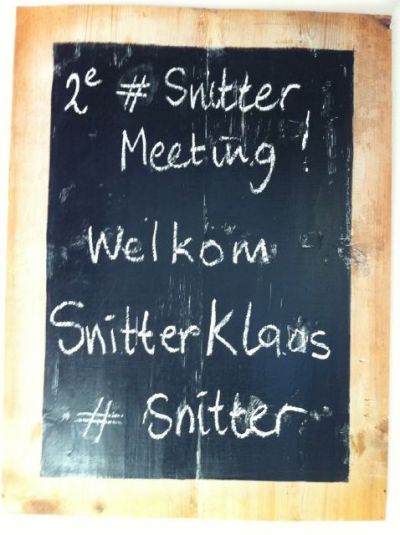 2e # Snitter
Meeting!
Welkom
SnitterKlaas
# Snitter